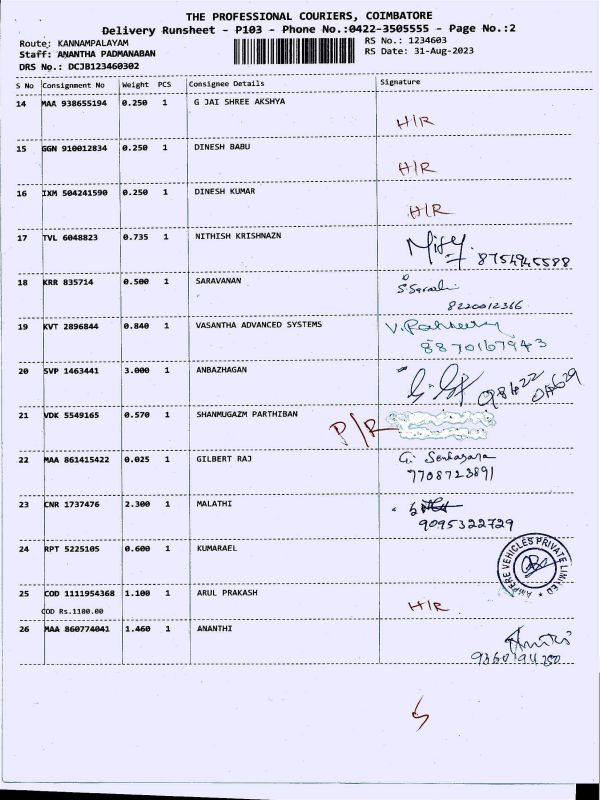 THE PROFESSIONAL COURIERS, COIMBATORE
Delivery Runsheet - P103 - Phone No.:0422-3505555 - Page No.:2
Route: KANNAMPALAYAM RS No.: 1234603
Staff: ANANTHA PADMANABAN RS Date: 31-Aug-2023
DRS No.: DCJB123460302
S No Consignment No Weight PCS Consignee Details Signature
14 MAA 938655194 0.250 1 G JAI SHREE AKSHYA
H/R
15 GGN 910012834 0.250 1 DINESH BABU
H/R
16 IXM 504241590 0.250 1 DINESH KUMAR
H/R
17 TVL 6048823 0.735 1 NITHISH KRISHNAZN
8754945588
18 KRR 835714 0.500 1 SARAVANAN
8220012366
19 KVT 2896844 0.840 1 VASANTHA ADVANCED SYSTEMS
8870167943
20 SVP 1463441 3.000 1 ANBAZHAGAN
21 VDK 5549165 0.570 1 SHANMUGAZM PARTHIBAN
P/R
22 MAA 861415422 0.025 1 GILBERT RAJ
7708723891
23 CNR 1737476 2.300 1 MALATHI
9095322729
24 RPT 5225105 0.600 1 KUMARAEL
AMPERE VEHICLES PRIVATE LIMITED
25 COD 1111954368 1.100 1 ARUL PRAKASH
COD Rs.1100.00
H/R
26 MAA 860774041 1.460 1 ANANTHI